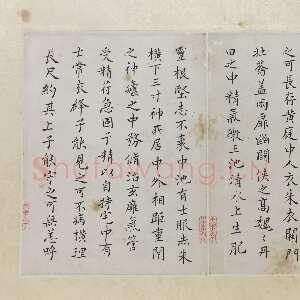 之可長存黄庭中人衣朱衣關門
壯籥蓋兩扉幽闕俠之高巍巍丹
田之中精氣微玉池清水上生肥
靈根堅志不衰中池有士服赤朱
橫下三寸神所居中外相距重閉
之神廬之中務脩治玄膺氣管
受精符急固子精以自持宅中有
士常衣絳子能見之可不病橫理
長尺約其上子能守之可無恙呼
Shufawang.cn